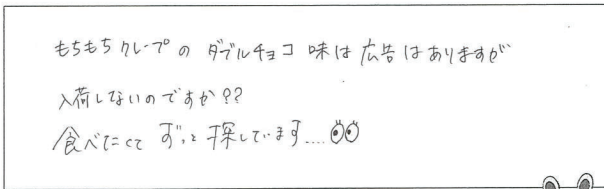 もちもちクレープの ダブルチョコ 味は 広告はありますが
入荷しないのですか??
食べたくて ずっと 探しています....